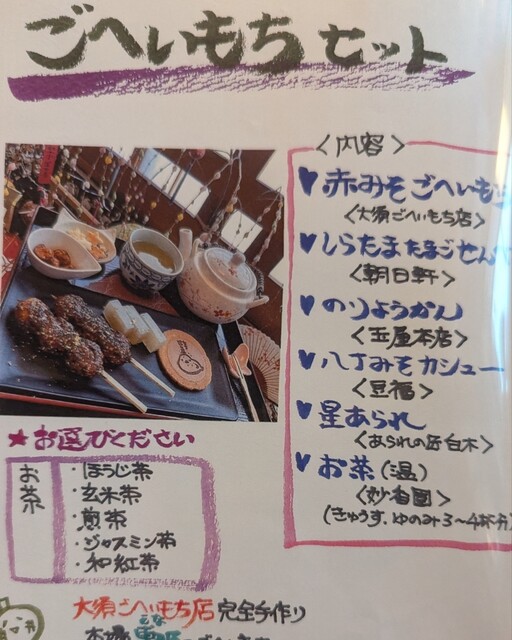 ごへいもちセット
<内容>
♥赤みそごへいも
<大須ごへいもち店>
♥しらたまたまごせん
<朝日軒>
♥のりようかん
<玉屋本店>
♥八丁みそカシュー
<豆福>
♥星あられ
<あられの匠白木>
♥お茶(温)
<妙香園>
(きゅうす、ゆのみ3〜4杯分)
★お選びください
お茶
・ほうじ茶
・玄米茶
・煎茶
・ジャスミン茶
・和紅茶
大須ごへいもち店 完全手作り